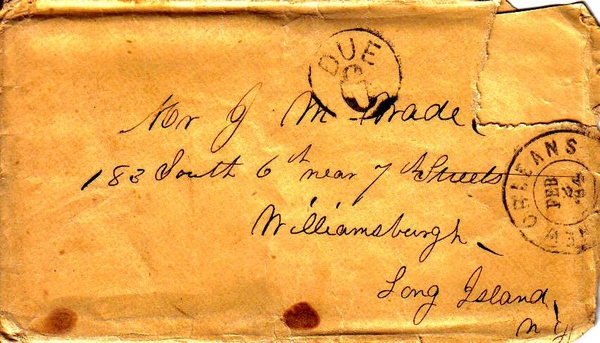 DUE 6
Mr J M Grade
183 South 6th near 7th Streets
Williamsburgh
Long Island
N Y
ORLEANS
FEB 24